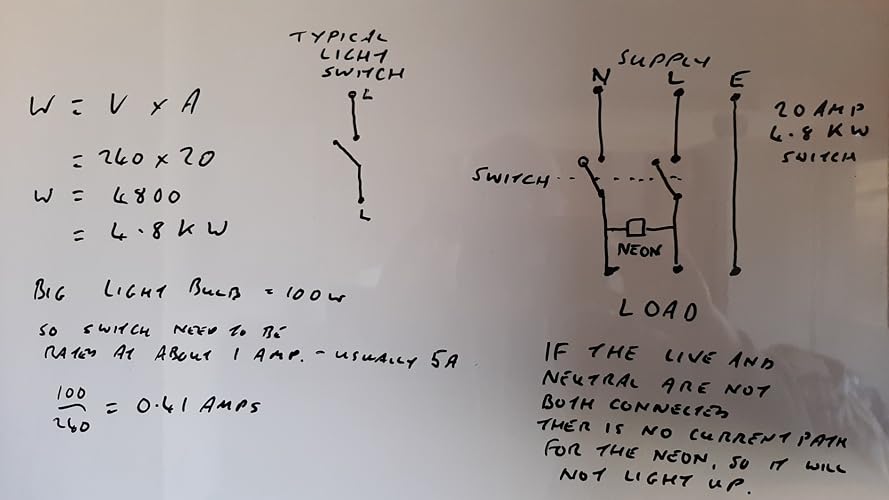 W = V x A
= 240 x 20
W = 4800
= 4.8 KW
BIG LIGHT BULB = 100W
SO SWITCH NEED TO BE
RATED AT ABOUT 1 AMP. - USUALLY 5A
100
240
= 0.41 AMPS
TYPICAL
LIGHT
SWITCH
L
L
SUPPLY
N L E
20 AMP
4.8 KW
SWITCH
SWITCH
NEON
LOAD
IF THE LIVE AND
NEUTRAL ARE NOT
BOTH CONNECTED
THER IS NO CURRENT PATH
FOR THE NEON, SO IT WILL
NOT LIGHT UP.